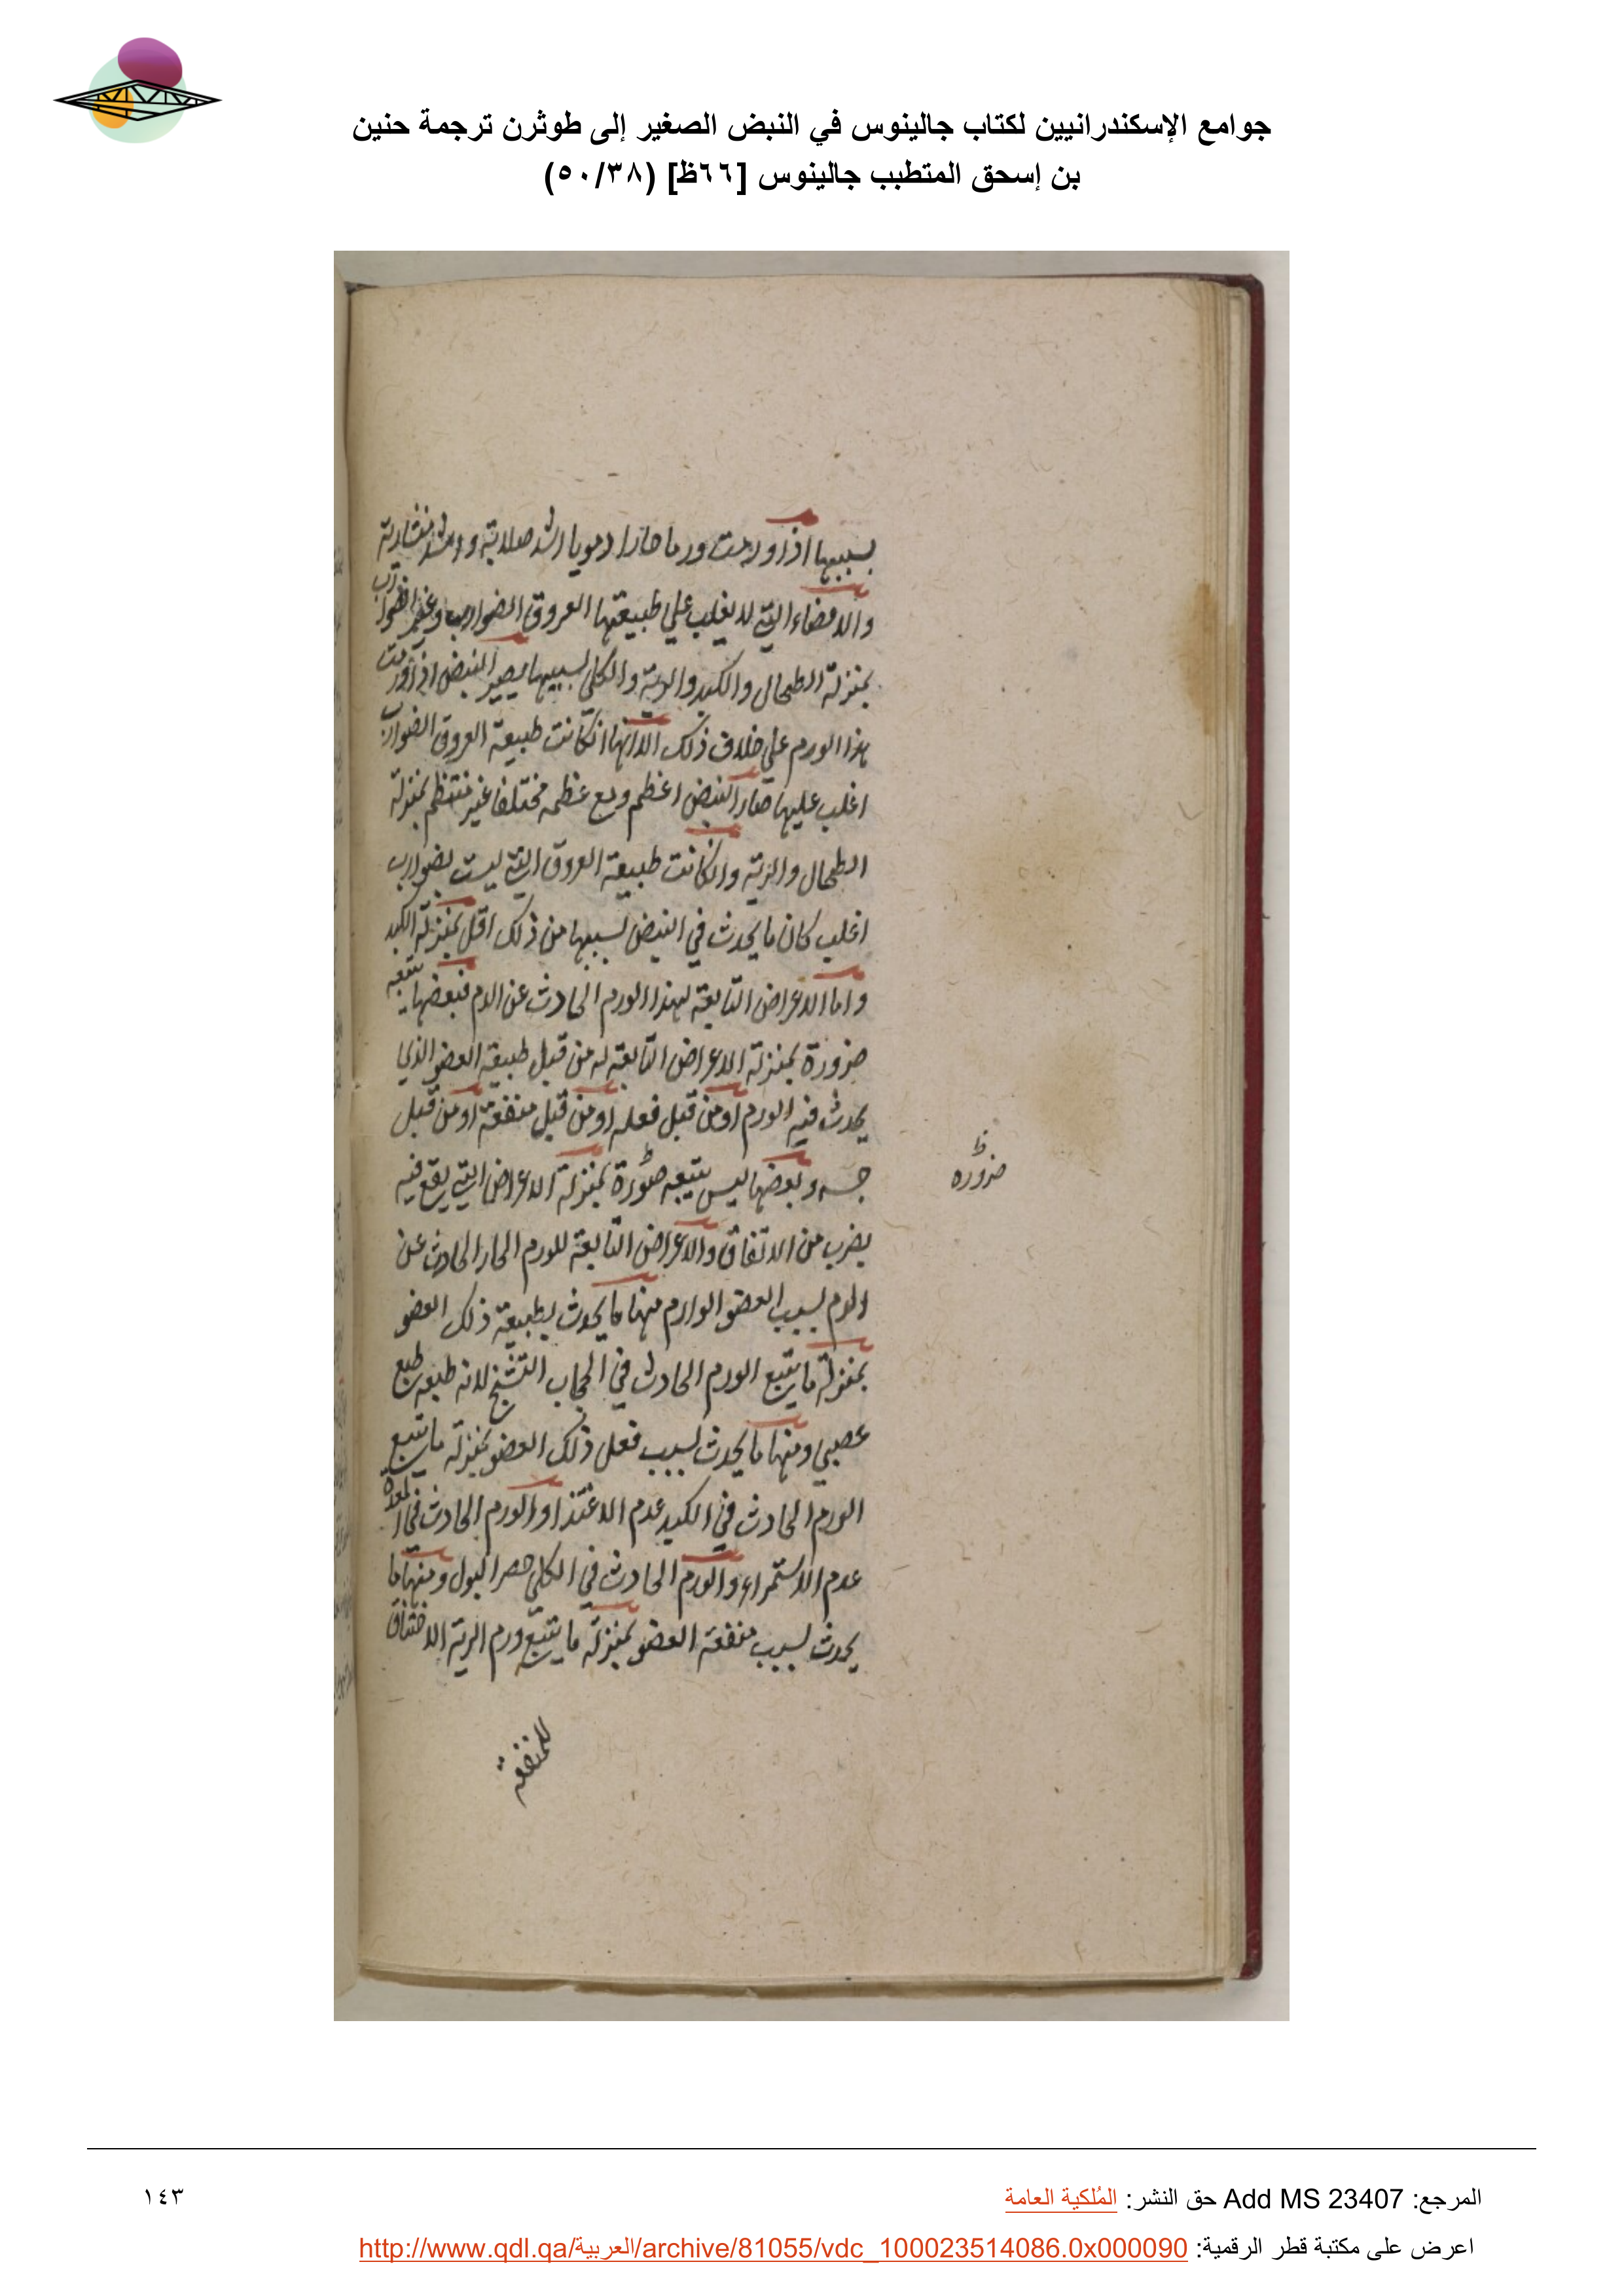 جوامع الإسكندرانيين لكتاب جالينوس في النبض الصغير إلى طوثرن ترجمة حنين
بن إسحق المتطبب جالينوس [٦٦ظ] (٥٠/٣٨)
بسببها اذا ورمت ورما حارا دمويا اشد صلابة واشد منشارية
والاعضاء التي لا يغلب علي طبيعتها العروق الضوارب وغير الضوارب
بمنزلة الطحال والكبد والرية والكلي بسببها يصير النبض اذا ورمت
هذا الورم علي خلاف ذلك الا انها انكانت طبيعة العروق الضوارب
اغلب عليها صار النبض اعظم ومع عظمه مختلفا غير منتظم بمنزلة
الطحال والرية وانكانت طبيعة العروق التي ليست بضوارب
اغلب كان ما يحدث في النبض بسببها من ذلك اقل بمنزلة الكبد
واما الاعراض التابعة لهذا الورم الحادث عن الدم فبعضها يتبعه
ضرورة بمنزلة الاعراض التابعة له من قبل طبيعة العضو الذي
يحدث فيه الورم او من قبل فعله او من قبل منفعة او من قبل
جسه وبعضها ليس يتبعه صورة بمنزلة الاعراض التي يقع فيه
ظ
ضرورة
بضرب من الاتفاق والاعراض التابعة للورم الحار الحادث عن
الدم بسبب العضو الوارم منها ما يحدث بطبيعة ذلك العضو
بمنزلة ما يتبع الورم الحادث في الحجاب التشنج لانه طبعه طبع
عصبي ومنها ما يحدث بسبب فعل ذلك العضو بمنزلة ما يتبع
الورم الحادث في الكبد عدم الاغتذا والورم الحادث في المعدة
عدم الاستمراء والورم الحادث في الكلي حصر البول ومنها ما
يحدث بسبب منفعة العضو بمنزلة ما يتبع ورم الرية الاختناق
للمنفعة
المرجع: Add MS 23407 حق النشر: المُلكية العامة
١٤٣
اعرض على مكتبة قطر الرقمية: http://www.qdl.qa/العربية/archive/81055/vdc_100023514086.0x000090